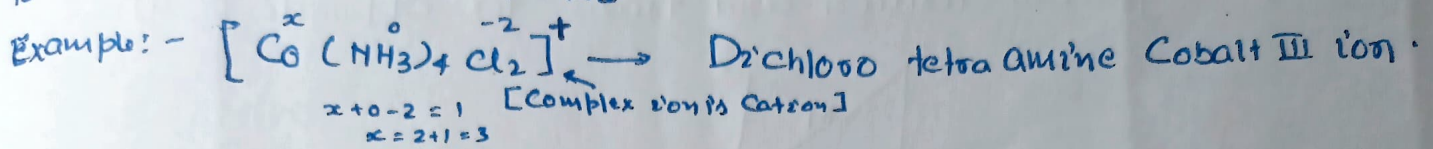 Example:- [Co^x (NH₃)₄^0 Cl₂^-2]⁺ → Dichloro tetra amine Cobalt III ion.
x+0-2=1 [Complex ion is Cation]
x=2+1=3